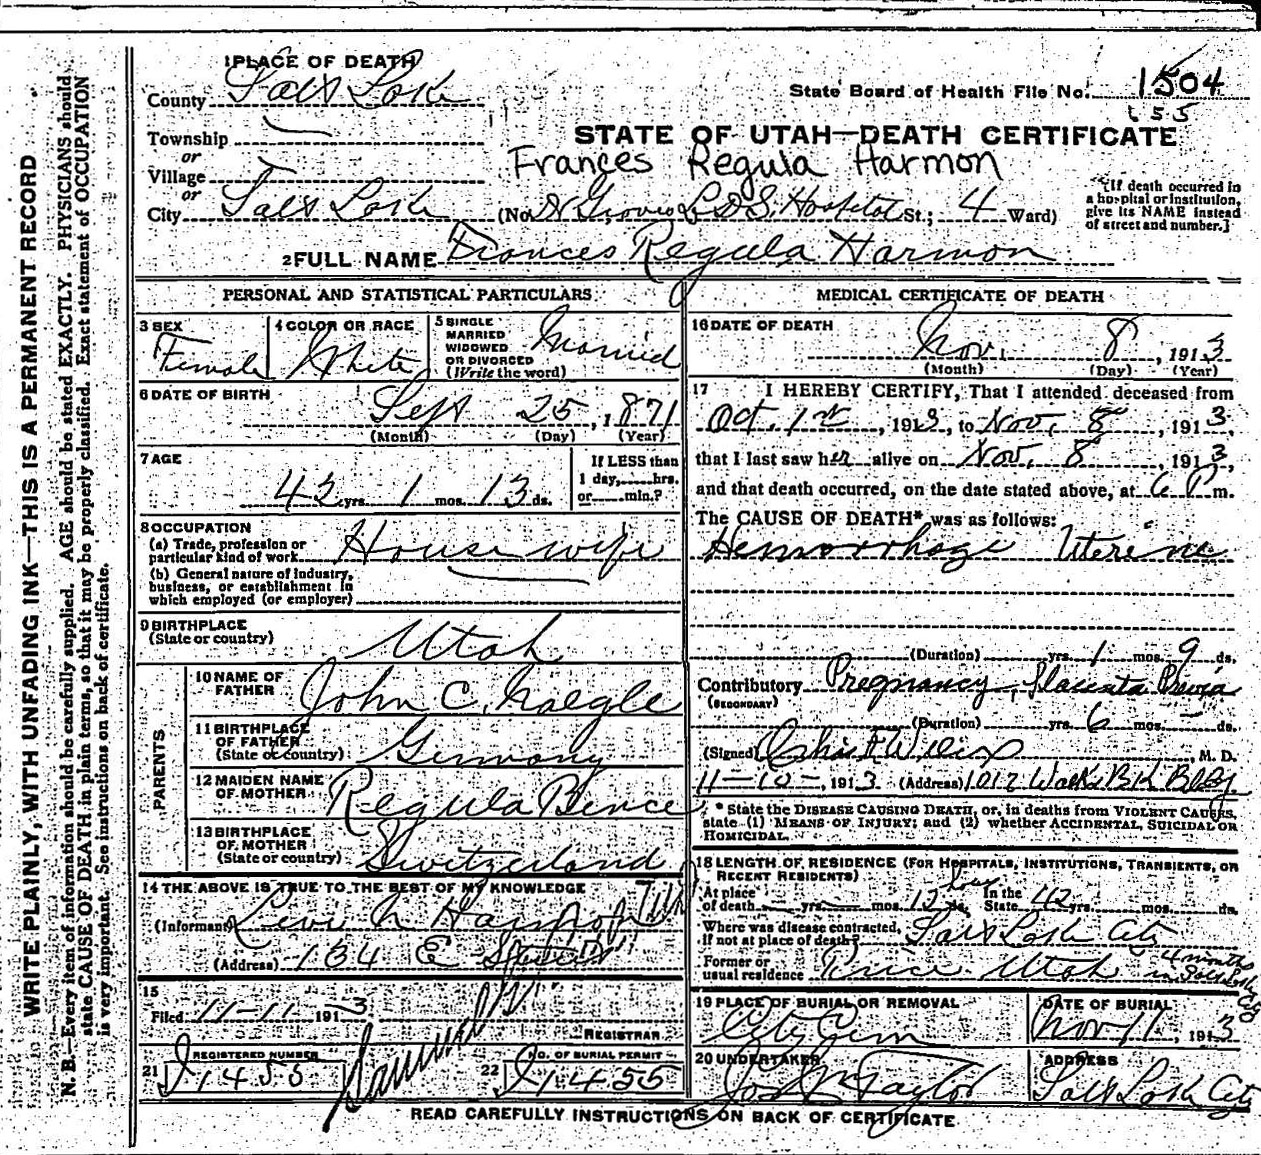 1 PLACE OF DEATH
County Salt Lake
State Board of Health File No. 1504
155
Township
or
Village
or
STATE OF UTAH—DEATH CERTIFICATE
Frances Regula Harmon
City Salt Lake (No. L D S. Hospital St.; 4 Ward)
[If death occurred in
a hospital or institution,
give its NAME instead
of street and number.]
2 FULL NAME Frances Regula Harmon
PERSONAL AND STATISTICAL PARTICULARS
3 SEX
Female
4 COLOR OR RACE
White
5 SINGLE
MARRIED
WIDOWED
OR DIVORCED
(Write the word)
Married
6 DATE OF BIRTH
Sept 25, 1871
(Month) (Day) (Year)
7 AGE
42 yrs. 1 mos. 13 ds.
If LESS than
1 day, hrs.
or min.?
8 OCCUPATION
(a) Trade, profession or
particular kind of work House wife
(b) General nature of industry,
business, or establishment in
which employed (or employer)
9 BIRTHPLACE
(State or country) Utah
PARENTS
10 NAME OF
FATHER John C. Naegle
11 BIRTHPLACE
OF FATHER
(State or country) Germany
12 MAIDEN NAME
OF MOTHER Regula Bence
13 BIRTHPLACE
OF MOTHER
(State or country) Switzerland
14 THE ABOVE IS TRUE TO THE BEST OF MY KNOWLEDGE
(Informant) Levi N Harmon
(Address) 134 E
15
Filed 11-11 1913
REGISTRAR
21 REGISTERED NUMBER
I 1455
22 NO. OF BURIAL PERMIT
I 1455
MEDICAL CERTIFICATE OF DEATH
16 DATE OF DEATH
Nov. 8, 1913
(Month) (Day) (Year)
17 I HEREBY CERTIFY, That I attended deceased from
Oct. 1st, 1913, to Nov. 8, 1913,
that I last saw her alive on Nov. 8, 1913,
and that death occurred, on the date stated above, at 6 P m.
The CAUSE OF DEATH* was as follows:
Hemorrhage Uterine
(Duration) yrs. 1 mos. 9 ds.
Contributory Pregnancy, Placenta Previa
(SECONDARY)
(Duration) yrs. 6 mos. ds.
(Signed), M. D.
11-10-, 1913 (Address) 1012 Walk. Bk Bldg.
* State the DISEASE CAUSING DEATH, or, in deaths from VIOLENT CAUSES,
state (1) MEANS OF INJURY; and (2) whether ACCIDENTAL, SUICIDAL OR
HOMICIDAL.
18 LENGTH OF RESIDENCE (FOR HOSPITALS, INSTITUTIONS, TRANSIENTS, OR
RECENT RESIDENTS)
At place
of death yrs. mos. 12 hours ds. In the
State 42 yrs. mos. ds.
Where was disease contracted,
If not at place of death? Salt Lake City
Former or
usual residence Price Utah 4 months in Salt Lake City
19 PLACE OF BURIAL OR REMOVAL
City Cem
DATE OF BURIAL
Nov 11, 1913
20 UNDERTAKER
Jos Wm Taylor
ADDRESS
Salt Lake City
READ CAREFULLY INSTRUCTIONS ON BACK OF CERTIFICATE
WRITE PLAINLY, WITH UNFADING INK—THIS IS A PERMANENT RECORD
N. B.—Every item of information should be carefully supplied. AGE should be stated EXACTLY. PHYSICIANS should
state CAUSE OF DEATH in plain terms, so that it may be properly classified. Exact statement of OCCUPATION
is very important. See instructions on back of certificate.